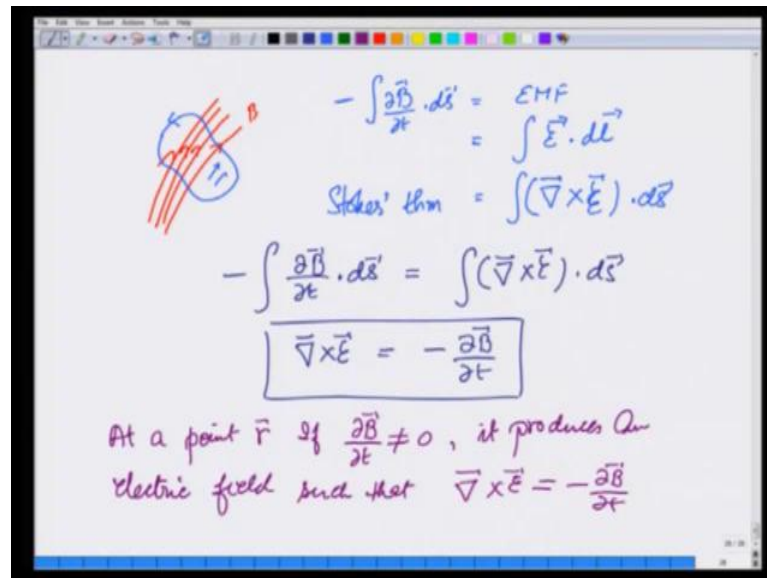 File Edit View Insert Actions Tools Help
B
- ∫ ∂B⃗/∂t · ds⃗ = EMF
= ∫ E⃗ · dl⃗
Stokes' thm = ∫(∇⃗ × E⃗) · ds⃗
- ∫ ∂B⃗/∂t · ds⃗ = ∫(∇⃗ × E⃗) · ds⃗
∇⃗ × E⃗ = - ∂B⃗/∂t
At a point r⃗ If ∂B⃗/∂t ≠ 0, it produces an
electric field such that ∇⃗ × E⃗ = - ∂B⃗/∂t